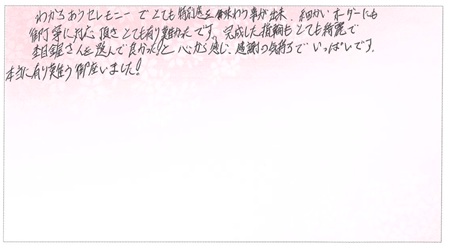 わかちあうセレモニーでとても特別感を味わう事が出来、細かいオーダーにも
御丁寧に対応頂きとても有り難かったです。完成した指輪もとても綺麗で
杢目金屋さんを選んで良かった!と心から感じ、感謝の気持ちでいっぱいです。
本当に有り難う御座いました!